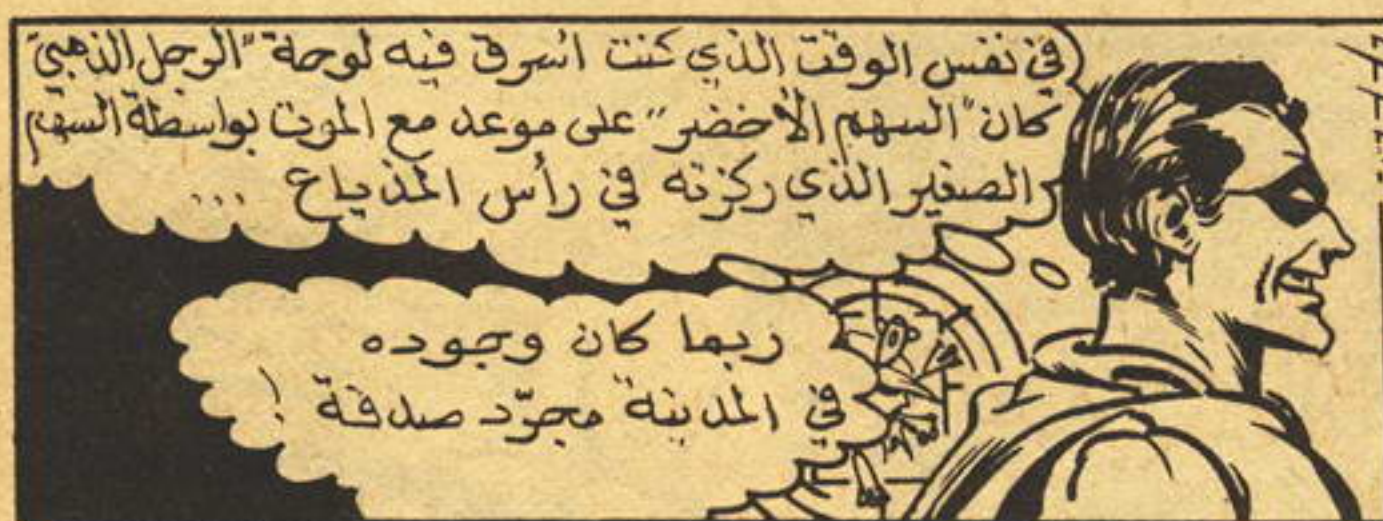 في نفس الوقت الذي كنت اسرق فيه لوحة "الرجل الذهبي"
كان "السهم الأخضر" على موعد مع الموت بواسطة السهم
الصغير الذي ركزته في رأس المذياع ...
ربما كان وجوده
في المدينة مجرّد صدفة !